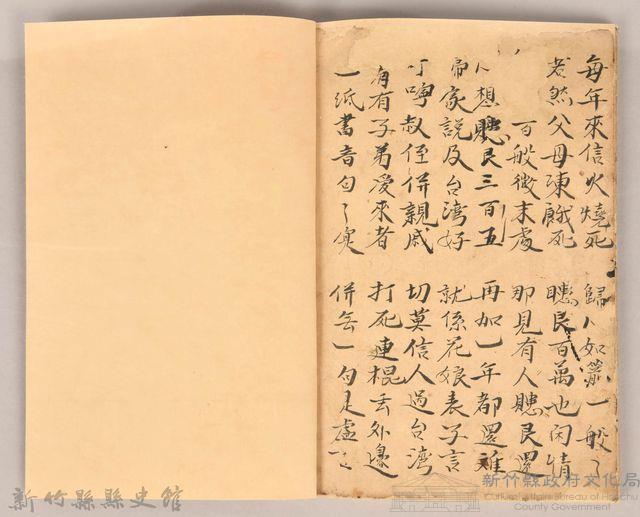 每年來信火燒死 歸人如箭一般
然父母凍餓死 百萬也閑情
百般微末處 那見有人還
人想三百五 再加一年都還難
家說及台湾好 就係花娘表子言
叮嚀叔侄併親戚 切莫信人過台湾
有子弟愛來者 打死連棍丢外邊
一紙書音句 併一句是虛
新竹縣縣史館
新竹縣政府文化局
Cultural Affairs Bureau of Hsinchu
County Government